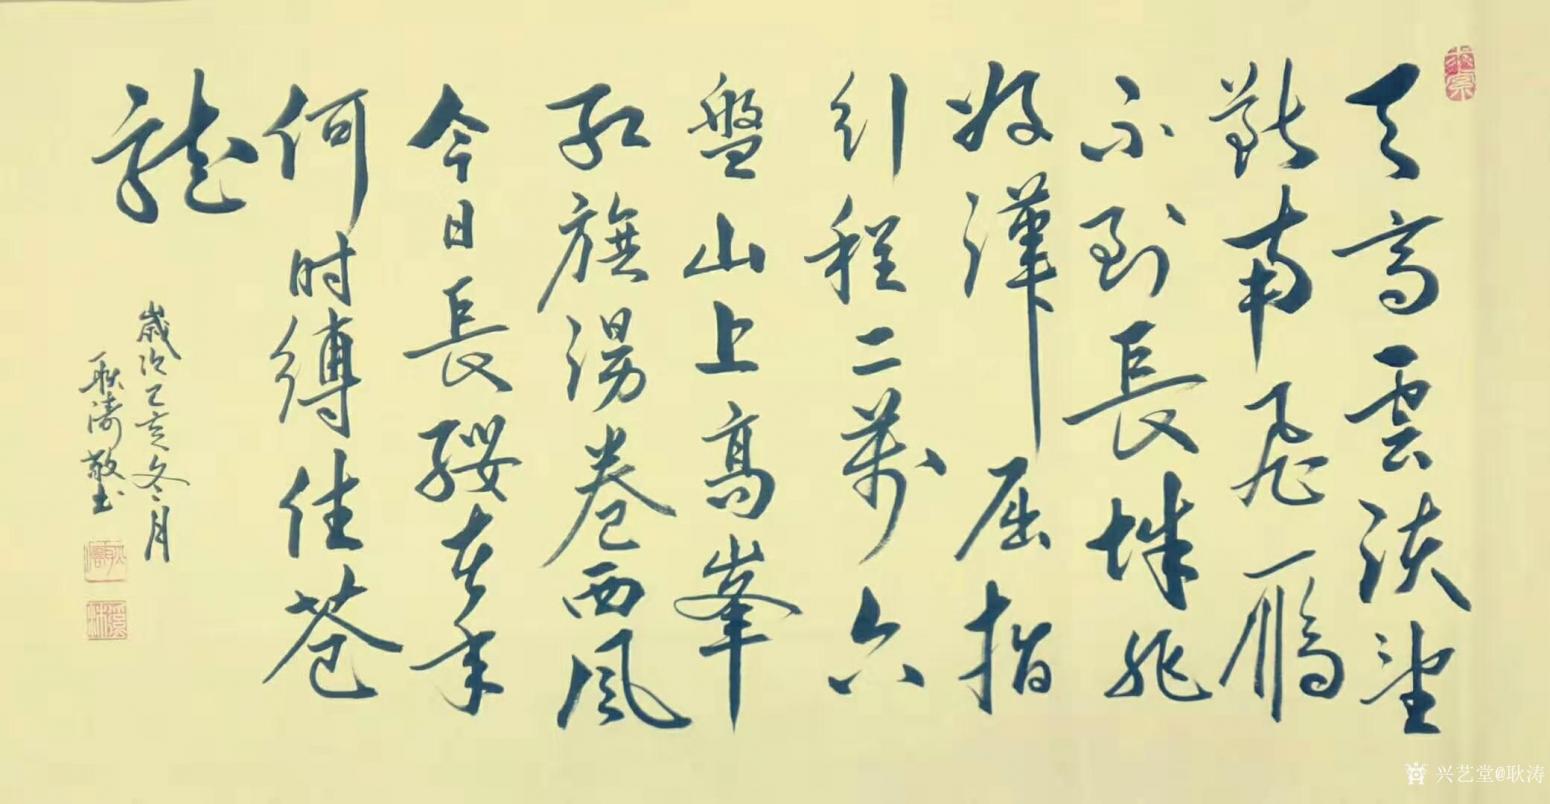 天高雲淡望
斷南飛鴈
不到長城非
好漢屈指
行程二萬六
盤山上高峯
紅旗漫卷西風
今日長纓在手
何时縛住蒼
龍
歲次己亥冬月
耿濤敬書
兴艺堂@耿涛